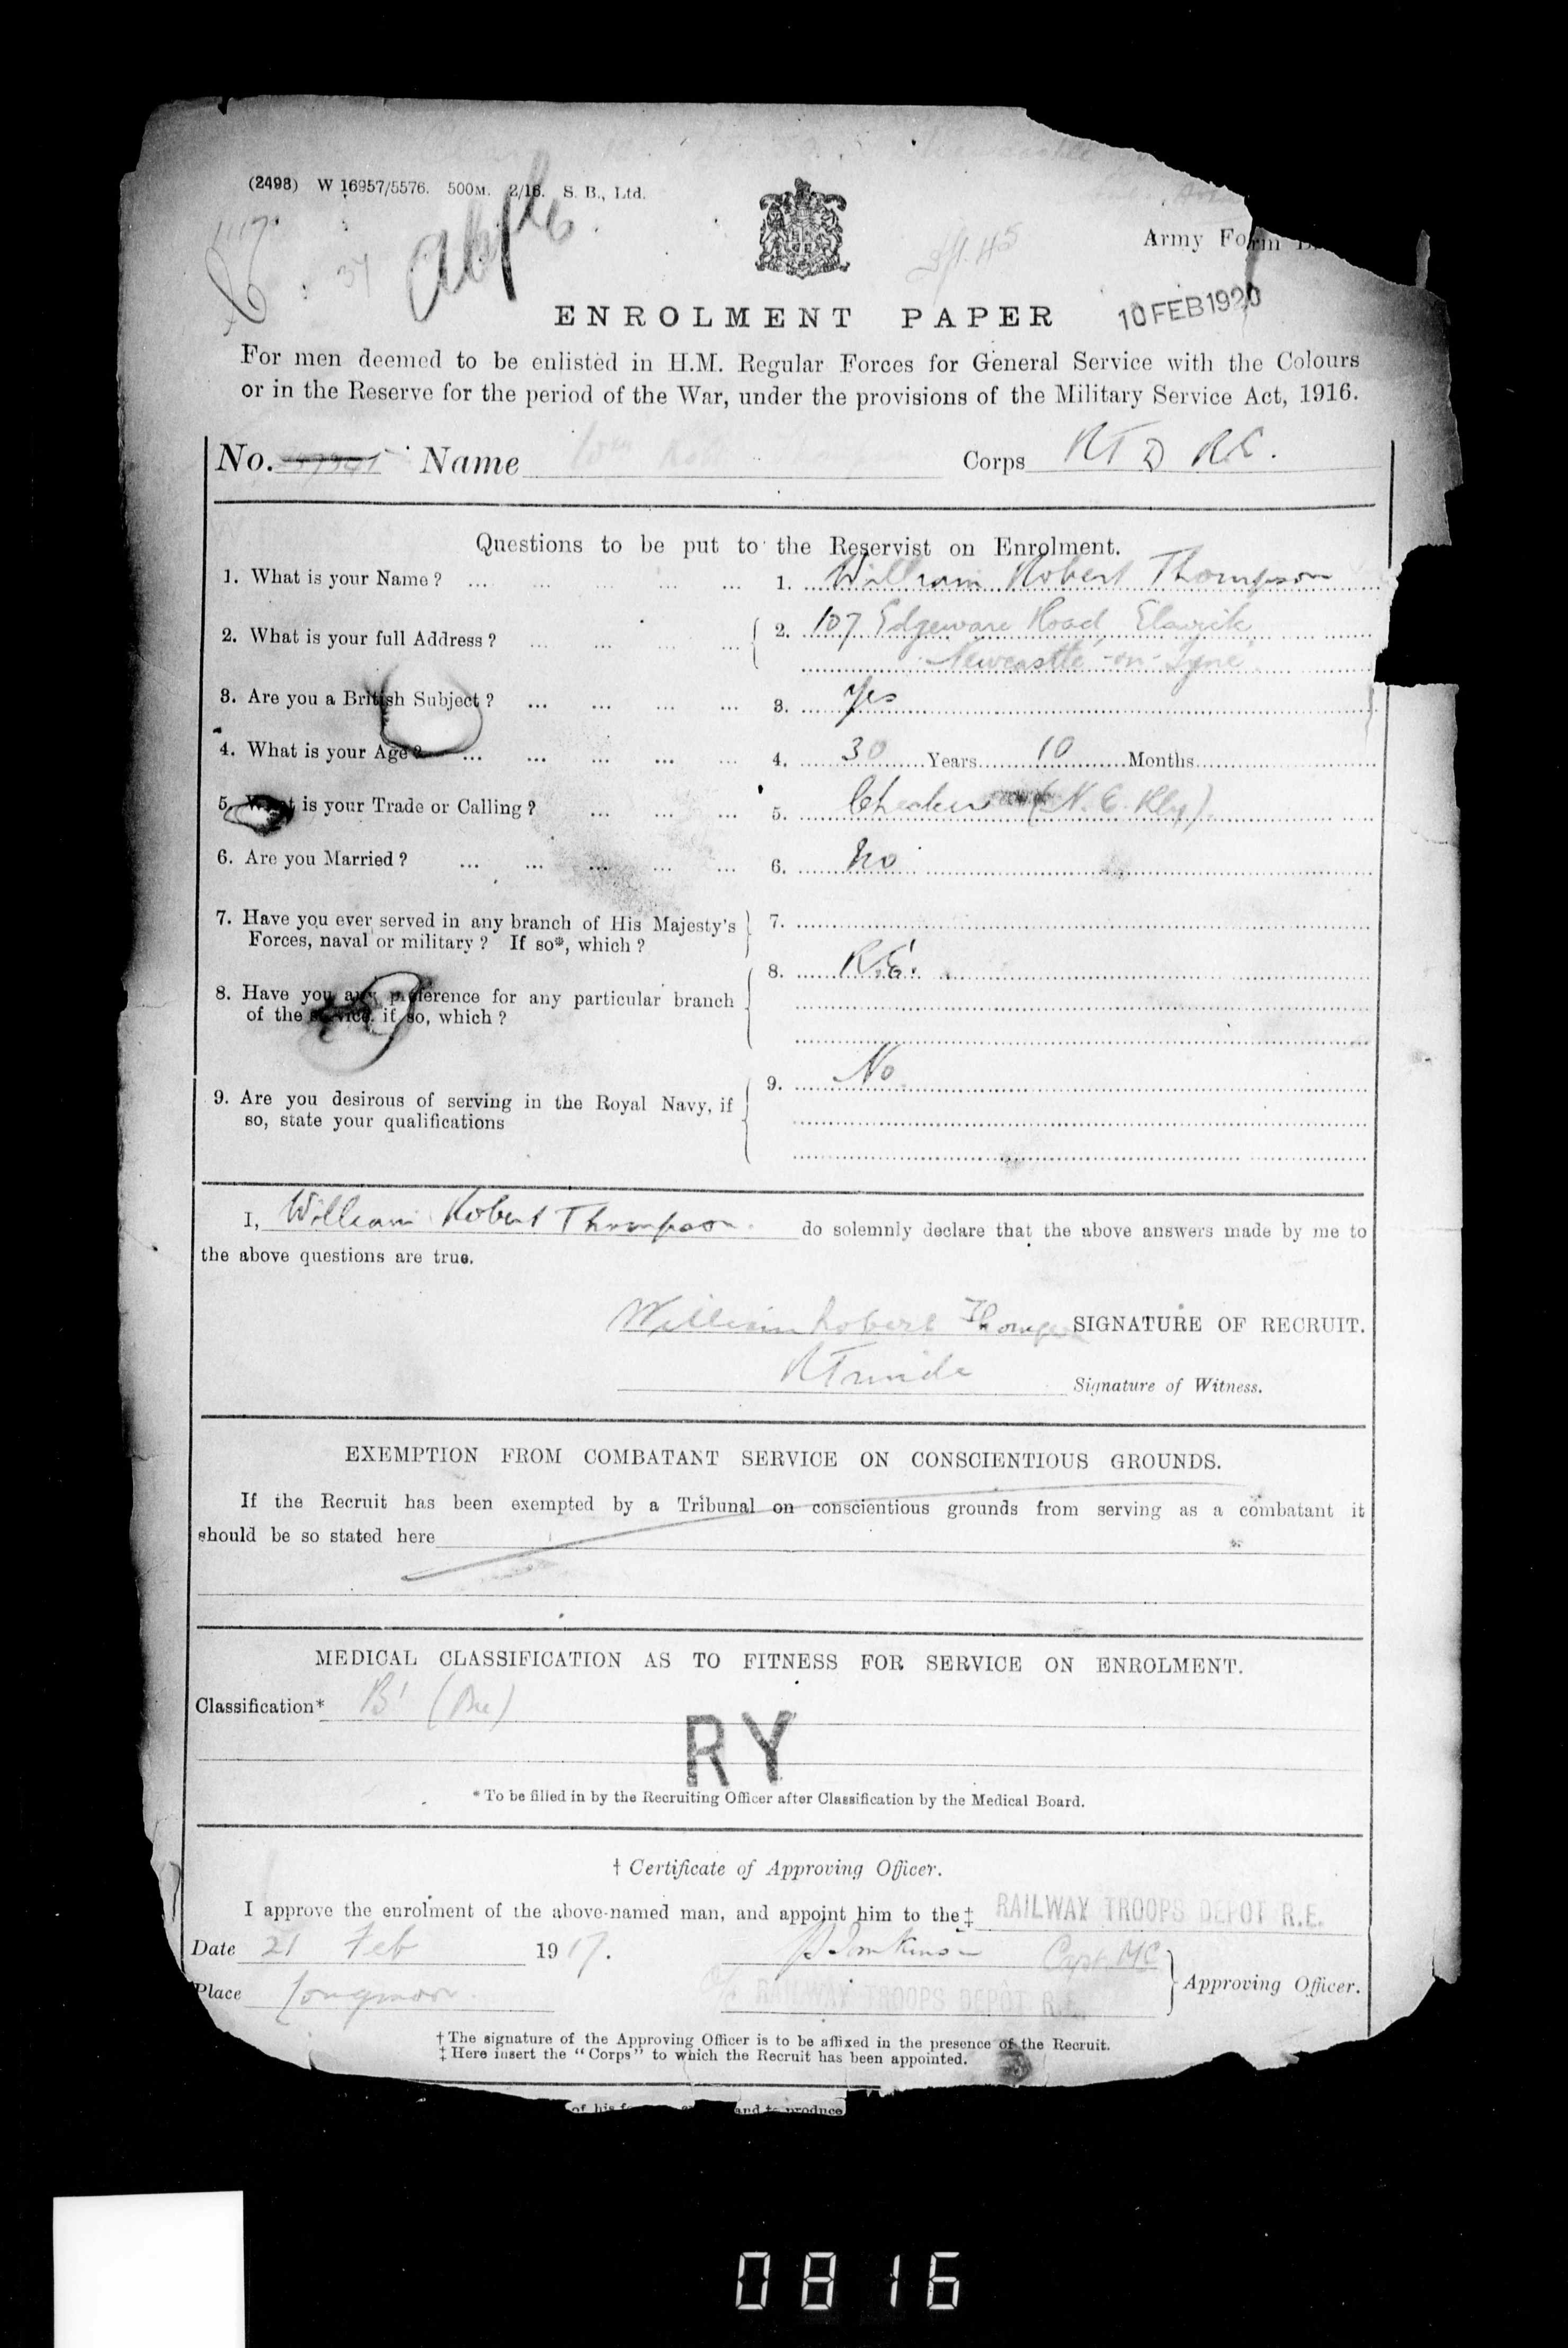 (2498) W 16957/5576. 500M. 2/16. S. B., Ltd.
Army Form
ENROLMENT PAPER
10 FEB 1920
For men deemed to be enlisted in H.M. Regular Forces for General Service with the Colours
or in the Reserve for the period of the War, under the provisions of the Military Service Act, 1916.
No. Name Wm Robert Thompson Corps R T D R.E.
Questions to be put to the Reservist on Enrolment.
1. What is your Name? ... ... ... ... ... 1. William Robert Thompson
2. What is your full Address? ... ... ... ... 2. 107 Edgeware Road, Elswick
Newcastle-on-Tyne
3. Are you a British Subject? ... ... ... ... 3. Yes
4. What is your Age? ... ... ... ... ... 4. 30 Years 10 Months
5. What is your Trade or Calling? ... ... ... 5. Checker (N. E. Rly).
6. Are you Married? ... ... ... ... ... 6. No
7. Have you ever served in any branch of His Majesty's 7.
Forces, naval or military? If so*, which?
8. Have you any preference for any particular branch 8. R.E.
of the service, if so, which?
9. Are you desirous of serving in the Royal Navy, if 9. No
so, state your qualifications
I, William Robert Thompson. do solemnly declare that the above answers made by me to
the above questions are true.
William Robert Thompson SIGNATURE OF RECRUIT.
Signature of Witness.
EXEMPTION FROM COMBATANT SERVICE ON CONSCIENTIOUS GROUNDS.
If the Recruit has been exempted by a Tribunal on conscientious grounds from serving as a combatant it
should be so stated here
MEDICAL CLASSIFICATION AS TO FITNESS FOR SERVICE ON ENROLMENT.
Classification* B1
RY
* To be filled in by the Recruiting Officer after Classification by the Medical Board.
† Certificate of Approving Officer.
I approve the enrolment of the above-named man, and appoint him to the‡ RAILWAY TROOPS DEPOT R.E.
Date 21 Feb 1917. Capt. MC
Place Longmoor RAILWAY TROOPS DEPOT R.E. Approving Officer.
† The signature of the Approving Officer is to be affixed in the presence of the Recruit.
‡ Here insert the "Corps" to which the Recruit has been appointed.
of his and to produce
0816